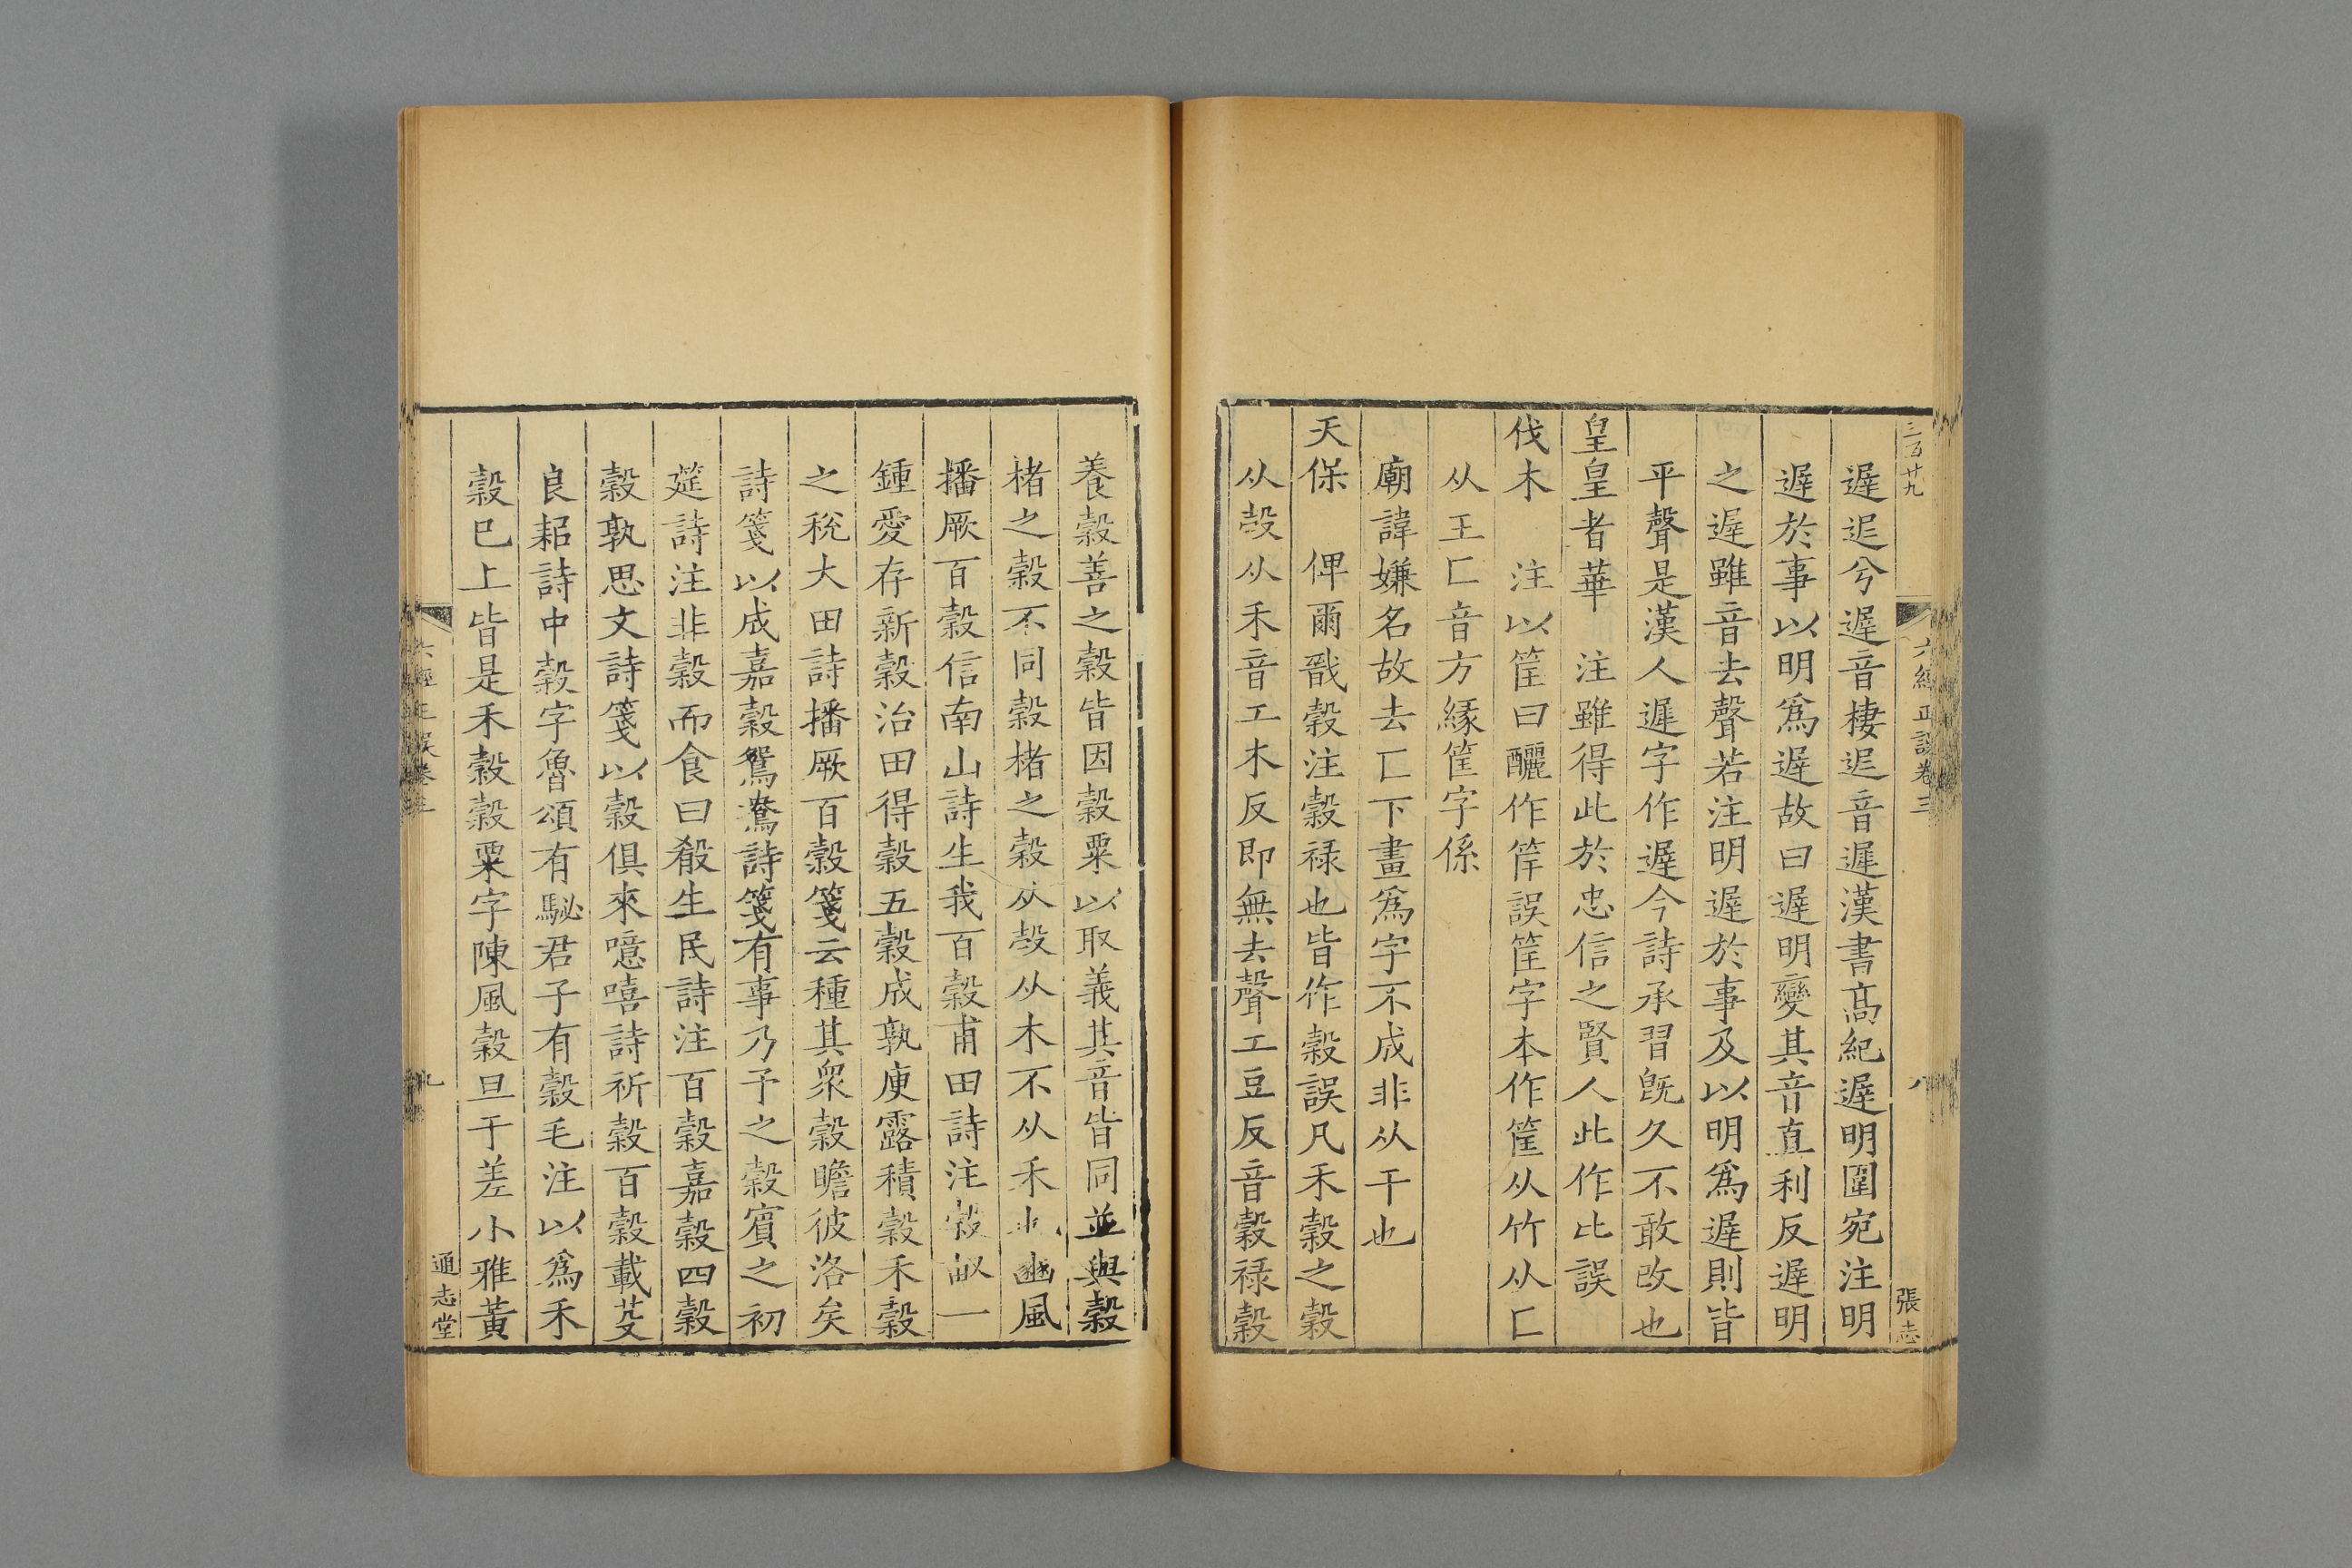 三百廿九
六經正誤卷三
八
張志
遲𨒈兮遲音棲𨒈音遲漢書髙紀遲明圍宛注明
遲於事以明爲遲故曰遲明變其音直利反遲明
之遲雖音去聲若注明遲於事及以明爲遲則皆
平聲是漢人遲字作遲今詩承習旣久不敢改也
皇皇者華　注雖得此於忠信之賢人此作比誤
伐木　注以筐曰釃作筓誤筐字本作筐从竹从匚
从王匚音方緣筐字係
廟諱嫌名故去匚下畫爲字不成非从干也
天保　俾爾戩穀注穀祿也皆作榖誤凡禾穀之穀
从𣪊从禾音工木反即無去聲工豆反音穀祿穀
養穀善之穀皆因穀粟以取義其音皆同並與穀
楮之榖不同榖楮之榖从𣪊从木不从禾也豳風
播厥百穀信南山詩生我百穀甫田詩注穀畝一
鍾愛存新穀治田得穀五穀成孰庾露積穀禾穀
之稅大田詩播厥百穀箋云種其衆穀瞻彼洛矣
詩箋以成嘉穀鴛鴦詩箋有事乃予之穀賓之初
筵詩注非穀而食曰殽生民詩注百穀嘉穀四穀
穀孰思文詩箋以穀俱來噫嘻詩祈穀百穀載芟
良耜詩中穀字魯頌有駜君子有穀毛注以爲禾
穀巳上皆是禾穀穀粟字陳風穀旦于差小雅黃
六經正誤卷三
九
通志堂